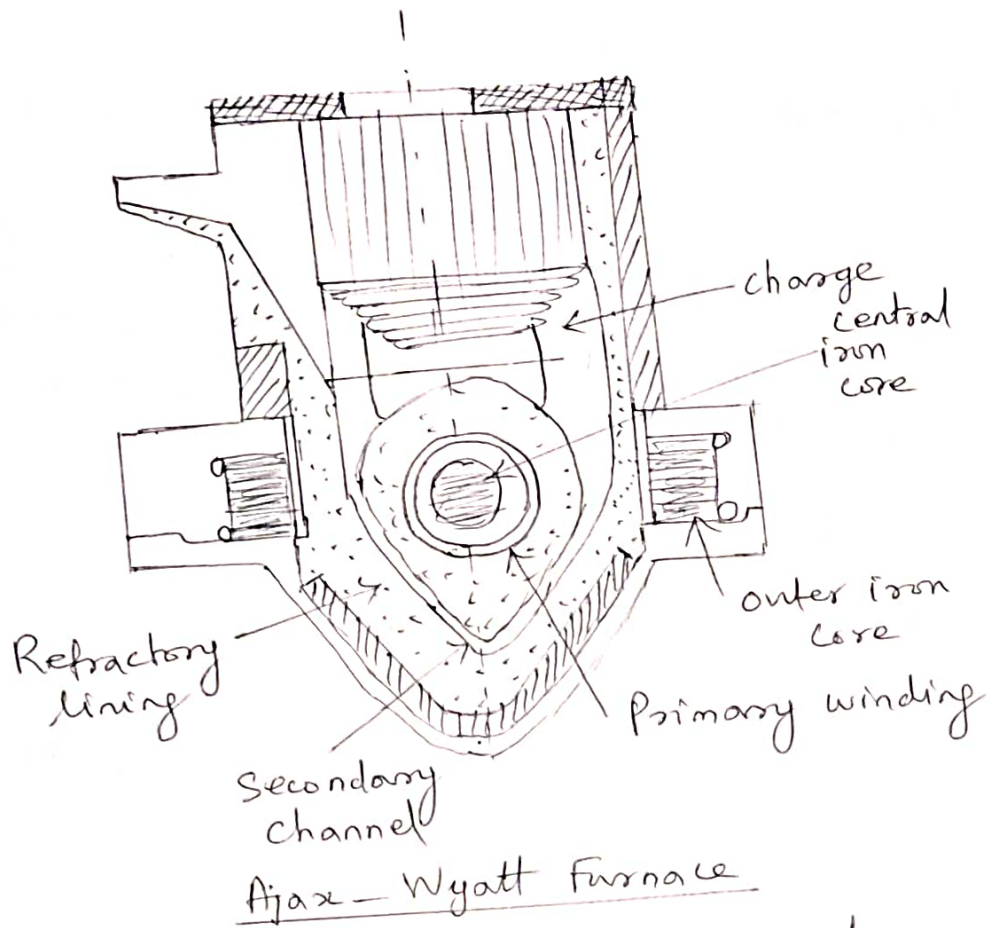 charge
central
iron
core
outer iron
core
Refractory
lining
Primary winding
Secondary
channel
Ajax - Wyatt Furnace